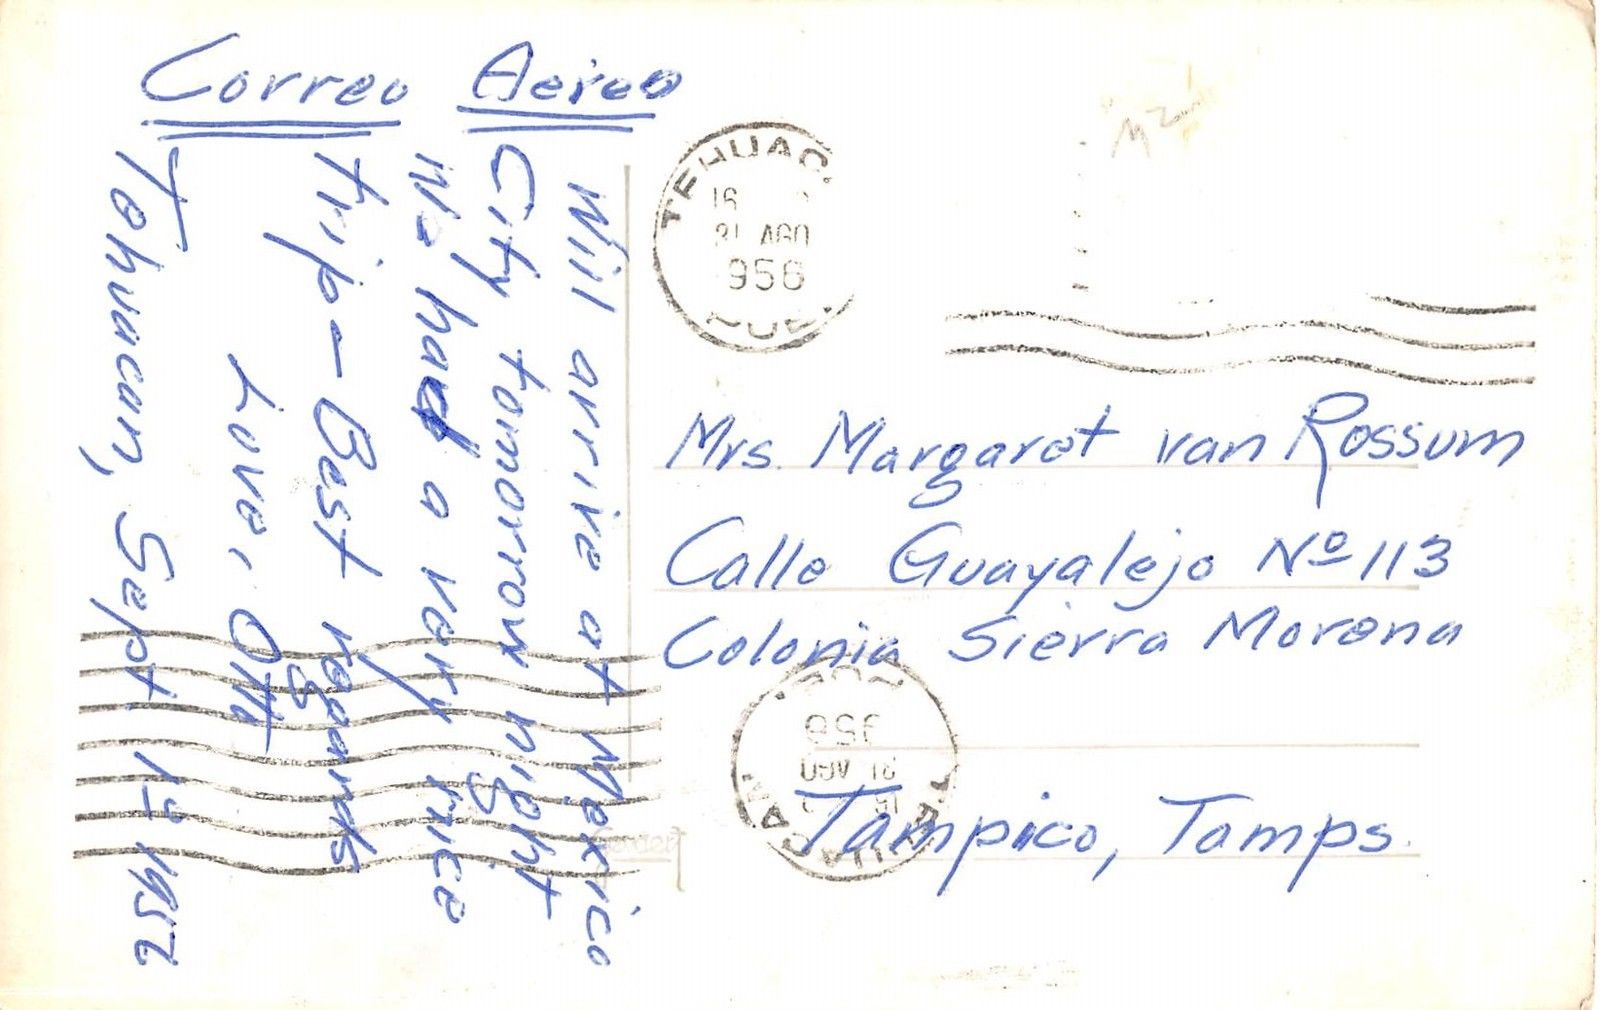 Correo Aereo
Will arrive at Mexico
City tomorrow night
We had a very nice
trip – Best regards
Love, Otto
Tehuacan, Sept. 1º 1956
16
31 AGO
956
Mrs. Margaret van Rossum
Calle Guayalejo Nº 113
Colonia Sierra Morena
Tampico, Tamps.
956
31 AGO